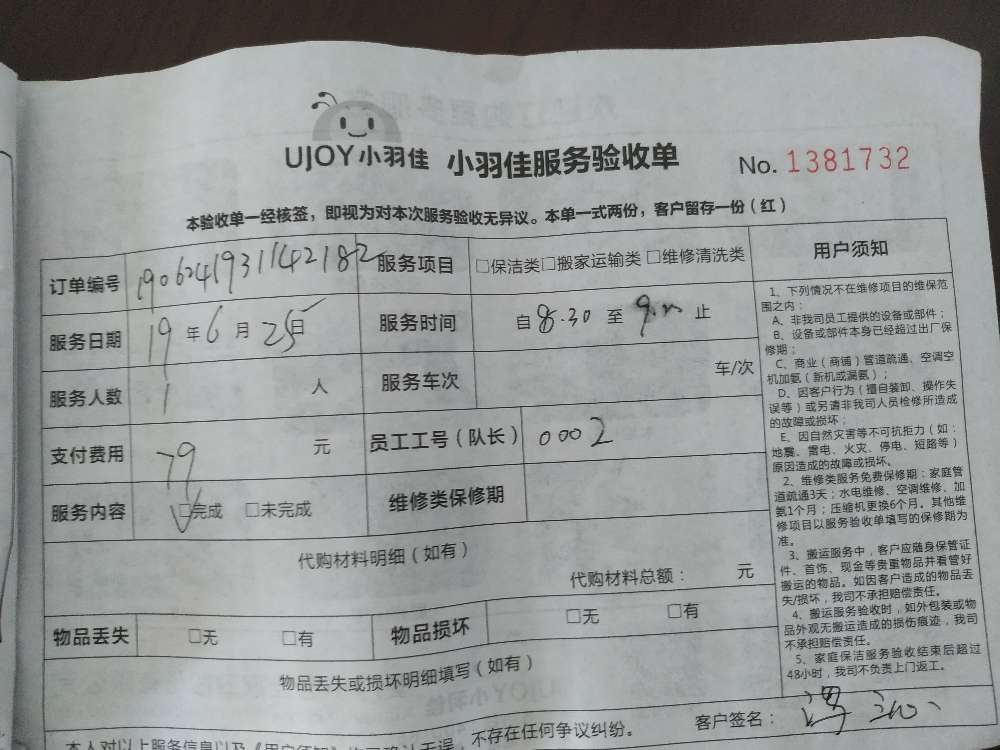 UJOY小羽佳 小羽佳服务验收单 No. 1381732
本验收单一经核签，即视为对本次服务验收无异议。本单一式两份，客户留存一份（红）
订单编号 190624193114218２ 服务项目 □保洁类□搬家运输类 □维修清洗类
服务日期 19 年 6 月 25 日 服务时间 自 8.30 至 止
服务人数 1 人 服务车次 车/次
支付费用 79 元 员工工号（队长） 0002
服务内容 □完成 □未完成 维修类保修期
代购材料明细（如有）
代购材料总额： 元
物品丢失 □无 □有 物品损坏 □无 □有
物品丢失或损坏明细填写（如有）
客户签名：
不存在任何争议纠纷。
用户须知
1、下列情况不在维修项目的维保范
围之内：
A、非我司员工提供的设备或部件；
B、设备或部件本身已经超过出厂保
修期；
C、商业（商铺）管道疏通、空调空
机加氨（新机或漏氨）；
D、因客户行为（擅自装卸、操作失
误等）或另请非我司人员检修所造成
的故障或损坏；
E、因自然灾害等不可抗拒力（如：
地震、雷电、火灾、停电、短路等）
原因造成的故障或损坏。
2、维修类服务免费保修期：家庭管
道疏通3天；水电维修、空调维修、加
氨1个月；压缩机更换6个月。其他维
修项目以服务验收单填写的保修期为
准。
3、搬运服务中，客户应随身保管证
件、首饰、现金等贵重物品并看管好
搬运的物品。如因客户造成的物品丢
失/损坏，我司不承担赔偿责任。
4、搬运服务验收时，如外包装或物
品外观无搬运造成的损伤痕迹，我司
不承担赔偿责任。
5、家庭保洁服务验收结束后超过
48小时，我司不负责上门返工。